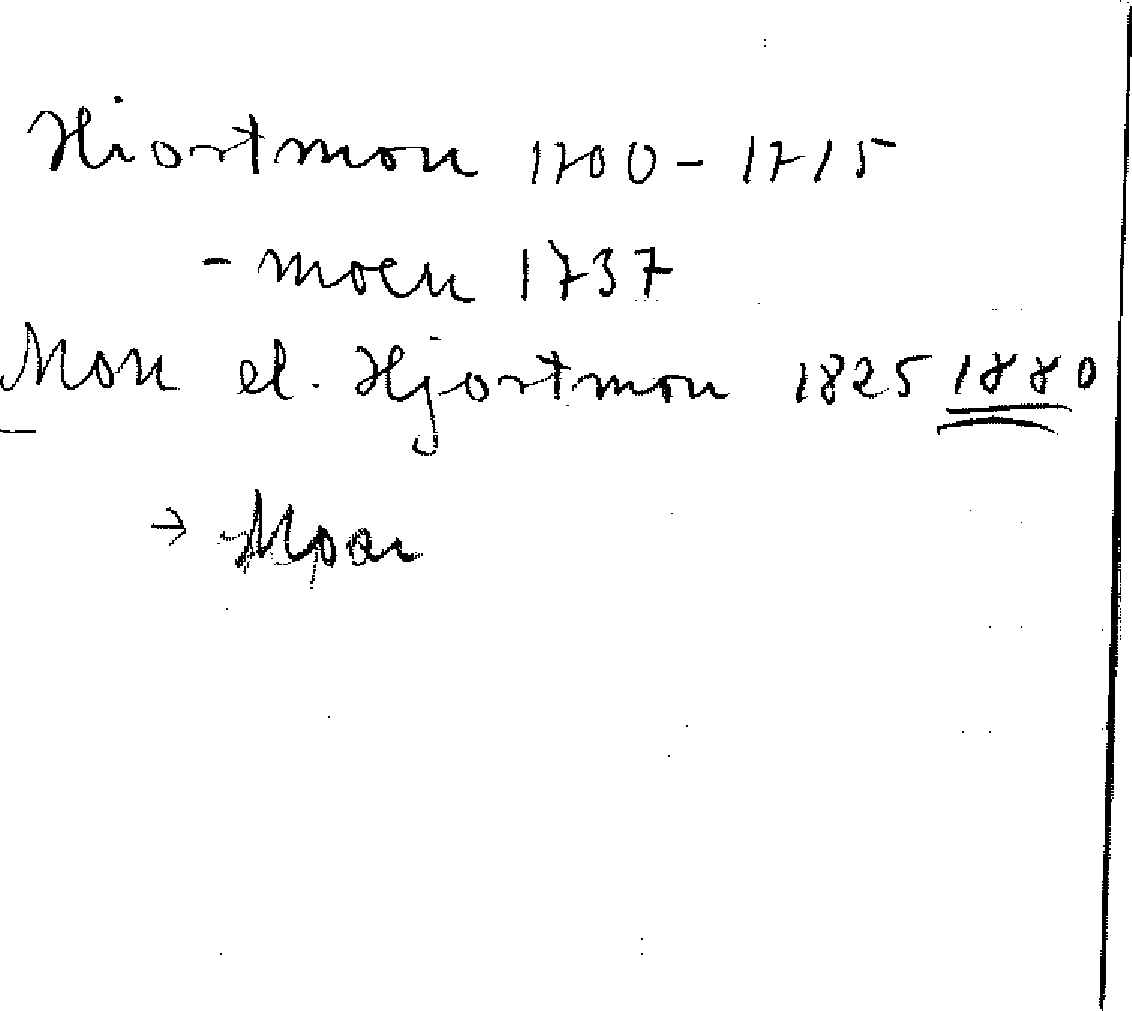 Hiortmon 1700 - 1715
- moen 1737
Mon el. Hjortmon 1825 1880
→ Moar